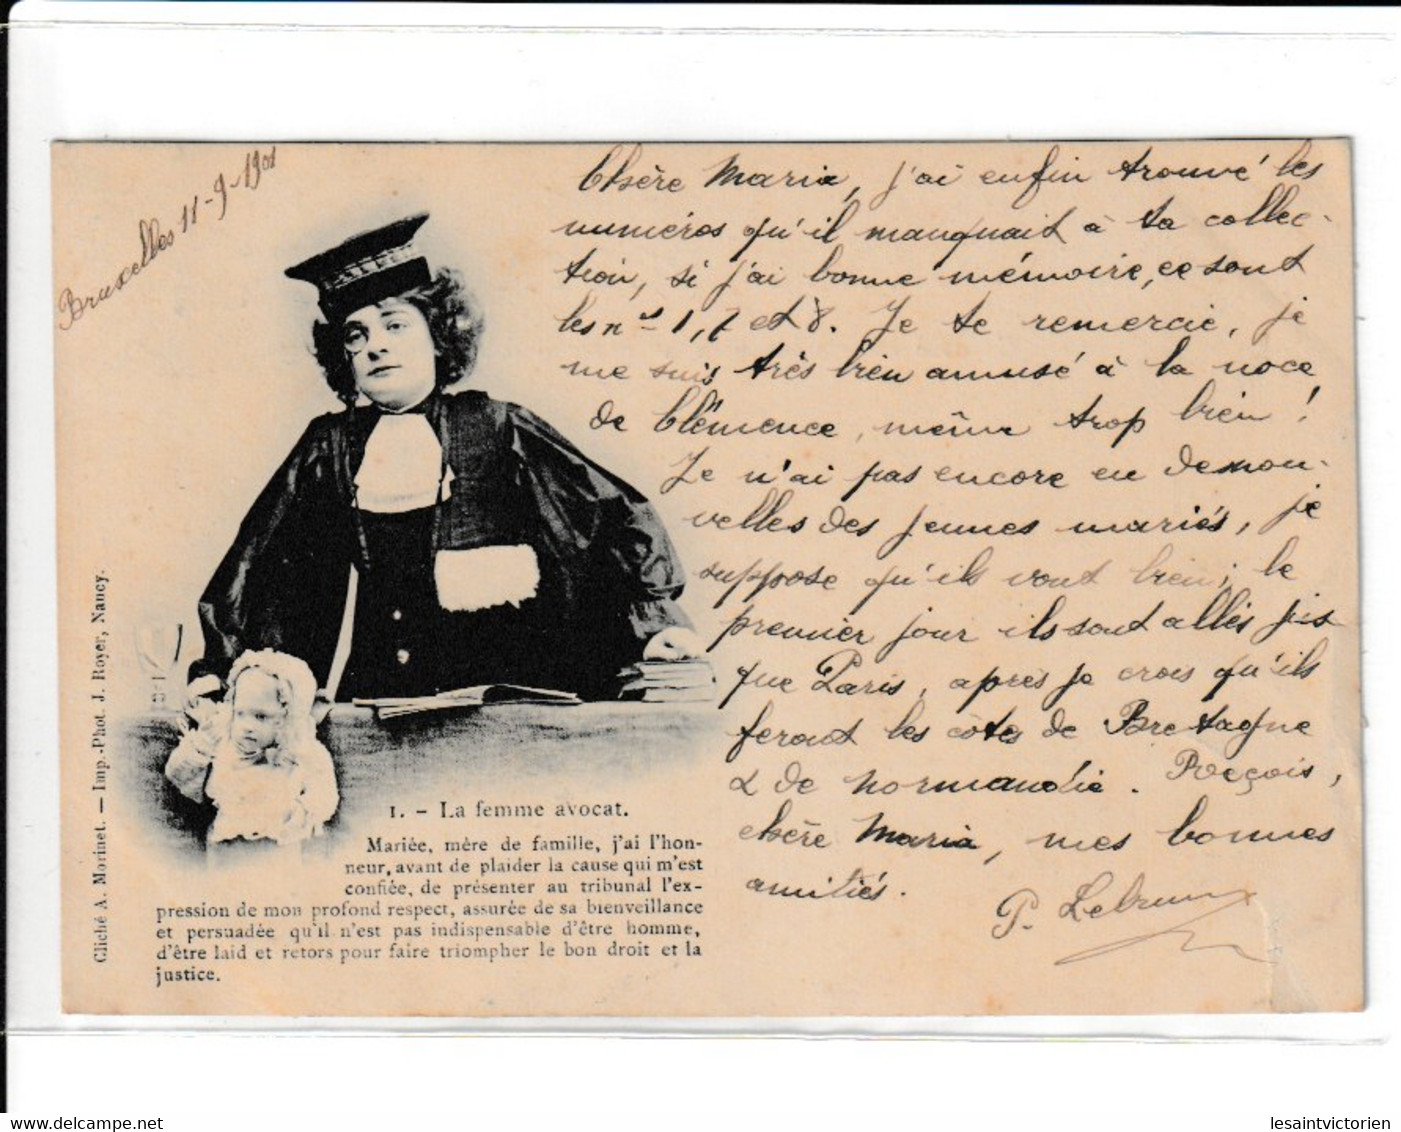 Bruxelles 11-9-1901
Chère Maria, j'ai enfin trouvé les
numéros qu'il manquait à ta collec-
tion, si j'ai bonne mémoire, ce sont
les nos 1, 7 et 8. Je te remercie, je
me suis très bien amusé à la noce
de Clémence, même trop bien !
Je n'ai pas encore eu de nou-
velles des jeunes mariés, je
suppose qu'ils vont bien; le
premier jour ils sont allés jus
que Paris, après je crois qu'ils
feront les côtes de Bretagne
& de Normandie. Reçois,
chère Maria, mes bonnes
amitiés.
P. Lebrun
1. - La femme avocat.
Mariée, mère de famille, j'ai l'hon-
neur, avant de plaider la cause qui m'est
confiée, de présenter au tribunal l'ex-
pression de mon profond respect, assurée de sa bienveillance
et persuadée qu'il n'est pas indispensable d'être homme,
d'être laid et retors pour faire triompher le bon droit et la
justice.
Cliché A. Morinet. — Imp.-Phot. J. Royer, Nancy.
www.delcampe.net
lesaintvictorien